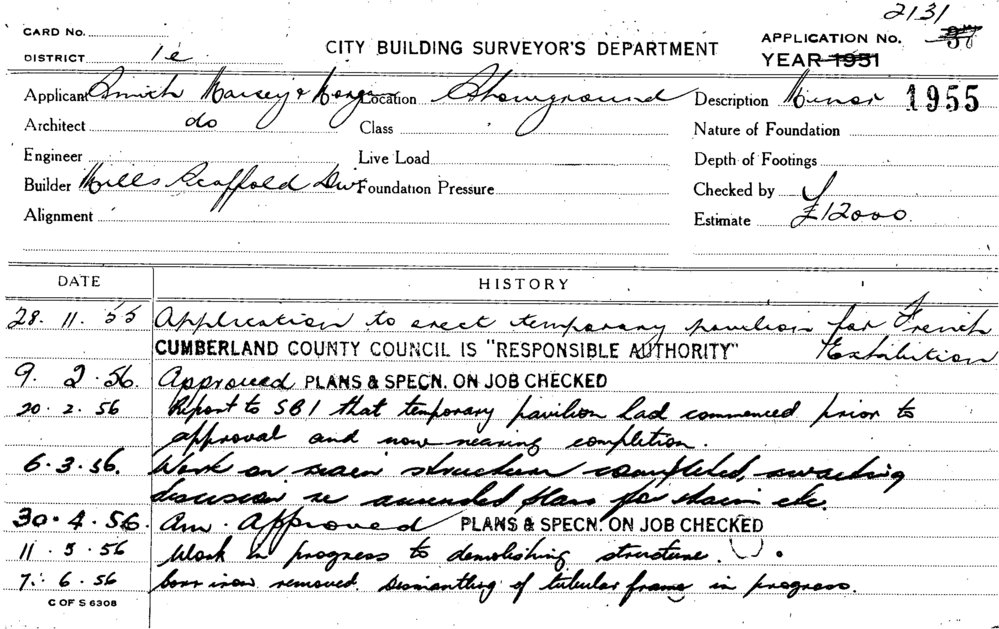 2131
CARD No. APPLICATION No. 37
DISTRICT 1e CITY BUILDING SURVEYOR'S DEPARTMENT YEAR 1951
Applicant Location Showground Description Minor 1955
Architect do Class Nature of Foundation
Engineer Live Load Depth of Footings
Builder Mills Scaffold Foundation Pressure Checked by
Alignment Estimate £12000.
DATE HISTORY
28. 11. 55 Application to erect temporary pavilion for French
CUMBERLAND COUNTY COUNCIL IS "RESPONSIBLE AUTHORITY" Exhibition
9. 2. 56 Approved PLANS & SPECN. ON JOB CHECKED
20. 2. 56 Report to SBI that temporary pavilion had commenced prior to
approval and now nearing completion.
6. 3. 56. Work on main structure completed, awaiting
decision re amended plans for etc.
30. 4. 56. Am. Approved PLANS & SPECN. ON JOB CHECKED
11. 5. 56 Work in progress to demolishing structure.
7. 6. 56 removed. Dismantling of tubular frame in progress.
C OF S 6308